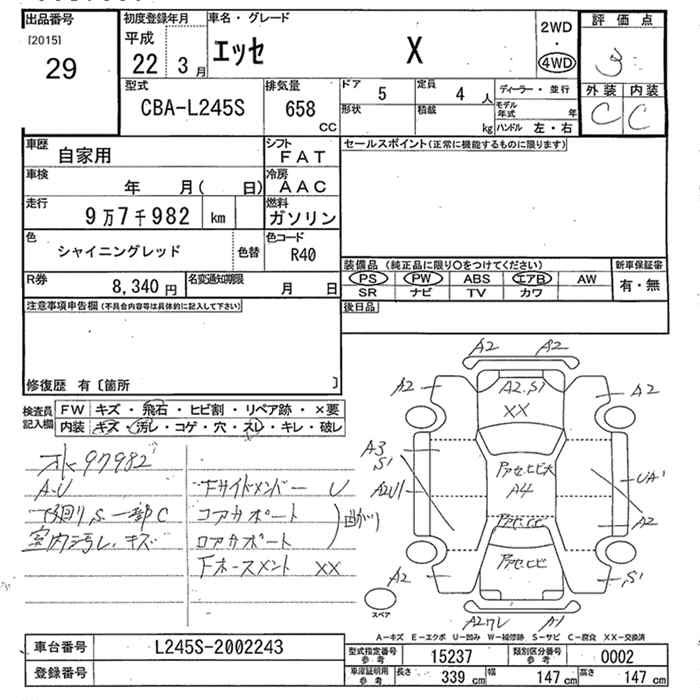 出品番号
[2015]
29
初度登録年月
平成
22 3月
車名・グレード
エッセ X
2WD
・
4WD
評価点
3
外装 内装
C C
型式
CBA-L245S
排気量
658 CC
ドア 5
形状
定員 4 人
積載 kg
ディーラー・並行
モデル年式 年
ハンドル 左・右
車歴
自家用
シフト
FAT
車検
年 月( 日)
冷房
AAC
走行
9万7千982 km
燃料
ガソリン
色
シャイニングレッド
色替
色コード
R40
R券
8,340 円
名変通知期限
月 日
注意事項申告欄 (不具合内容等は具体的に記入して下さい)
修復歴 有〔箇所 〕
セールスポイント(正常に機能するものに限ります)
装備品 (純正品に限り○をつけてください)
PS PW ABS エアB AW
SR ナビ TV カワ
新車保証書
有・無
後日品
検査員記入欄
FW キズ・飛石・ヒビ割・リペア跡・×要
内装 キズ・汚レ・コゲ・穴・スレ・キレ・破レ
水97982
A.U
下廻りS 一部C
室内汚レ、キズ
Fサイドメンバー U
コアサポート
ロアサポート
曲がり
Fホースメント XX
A2 A2
A2 A2.S1 A2
XX
A3
S1
アセ.ヒビ大
A4
A2U1
UA1
A2
アセ.ヒビ
A2 S1
A2ワレ A1
スペア
A-キズ E-エクボ U-凹み W-補修跡 S-サビ C-腐食 XX-交換済
車台番号
L245S-2002243
登録番号
型式指定番号 参考
15237
類別区分番号 参考
0002
車庫証明用 参考
長さ 339 cm
幅 147 cm
高さ 147 cm